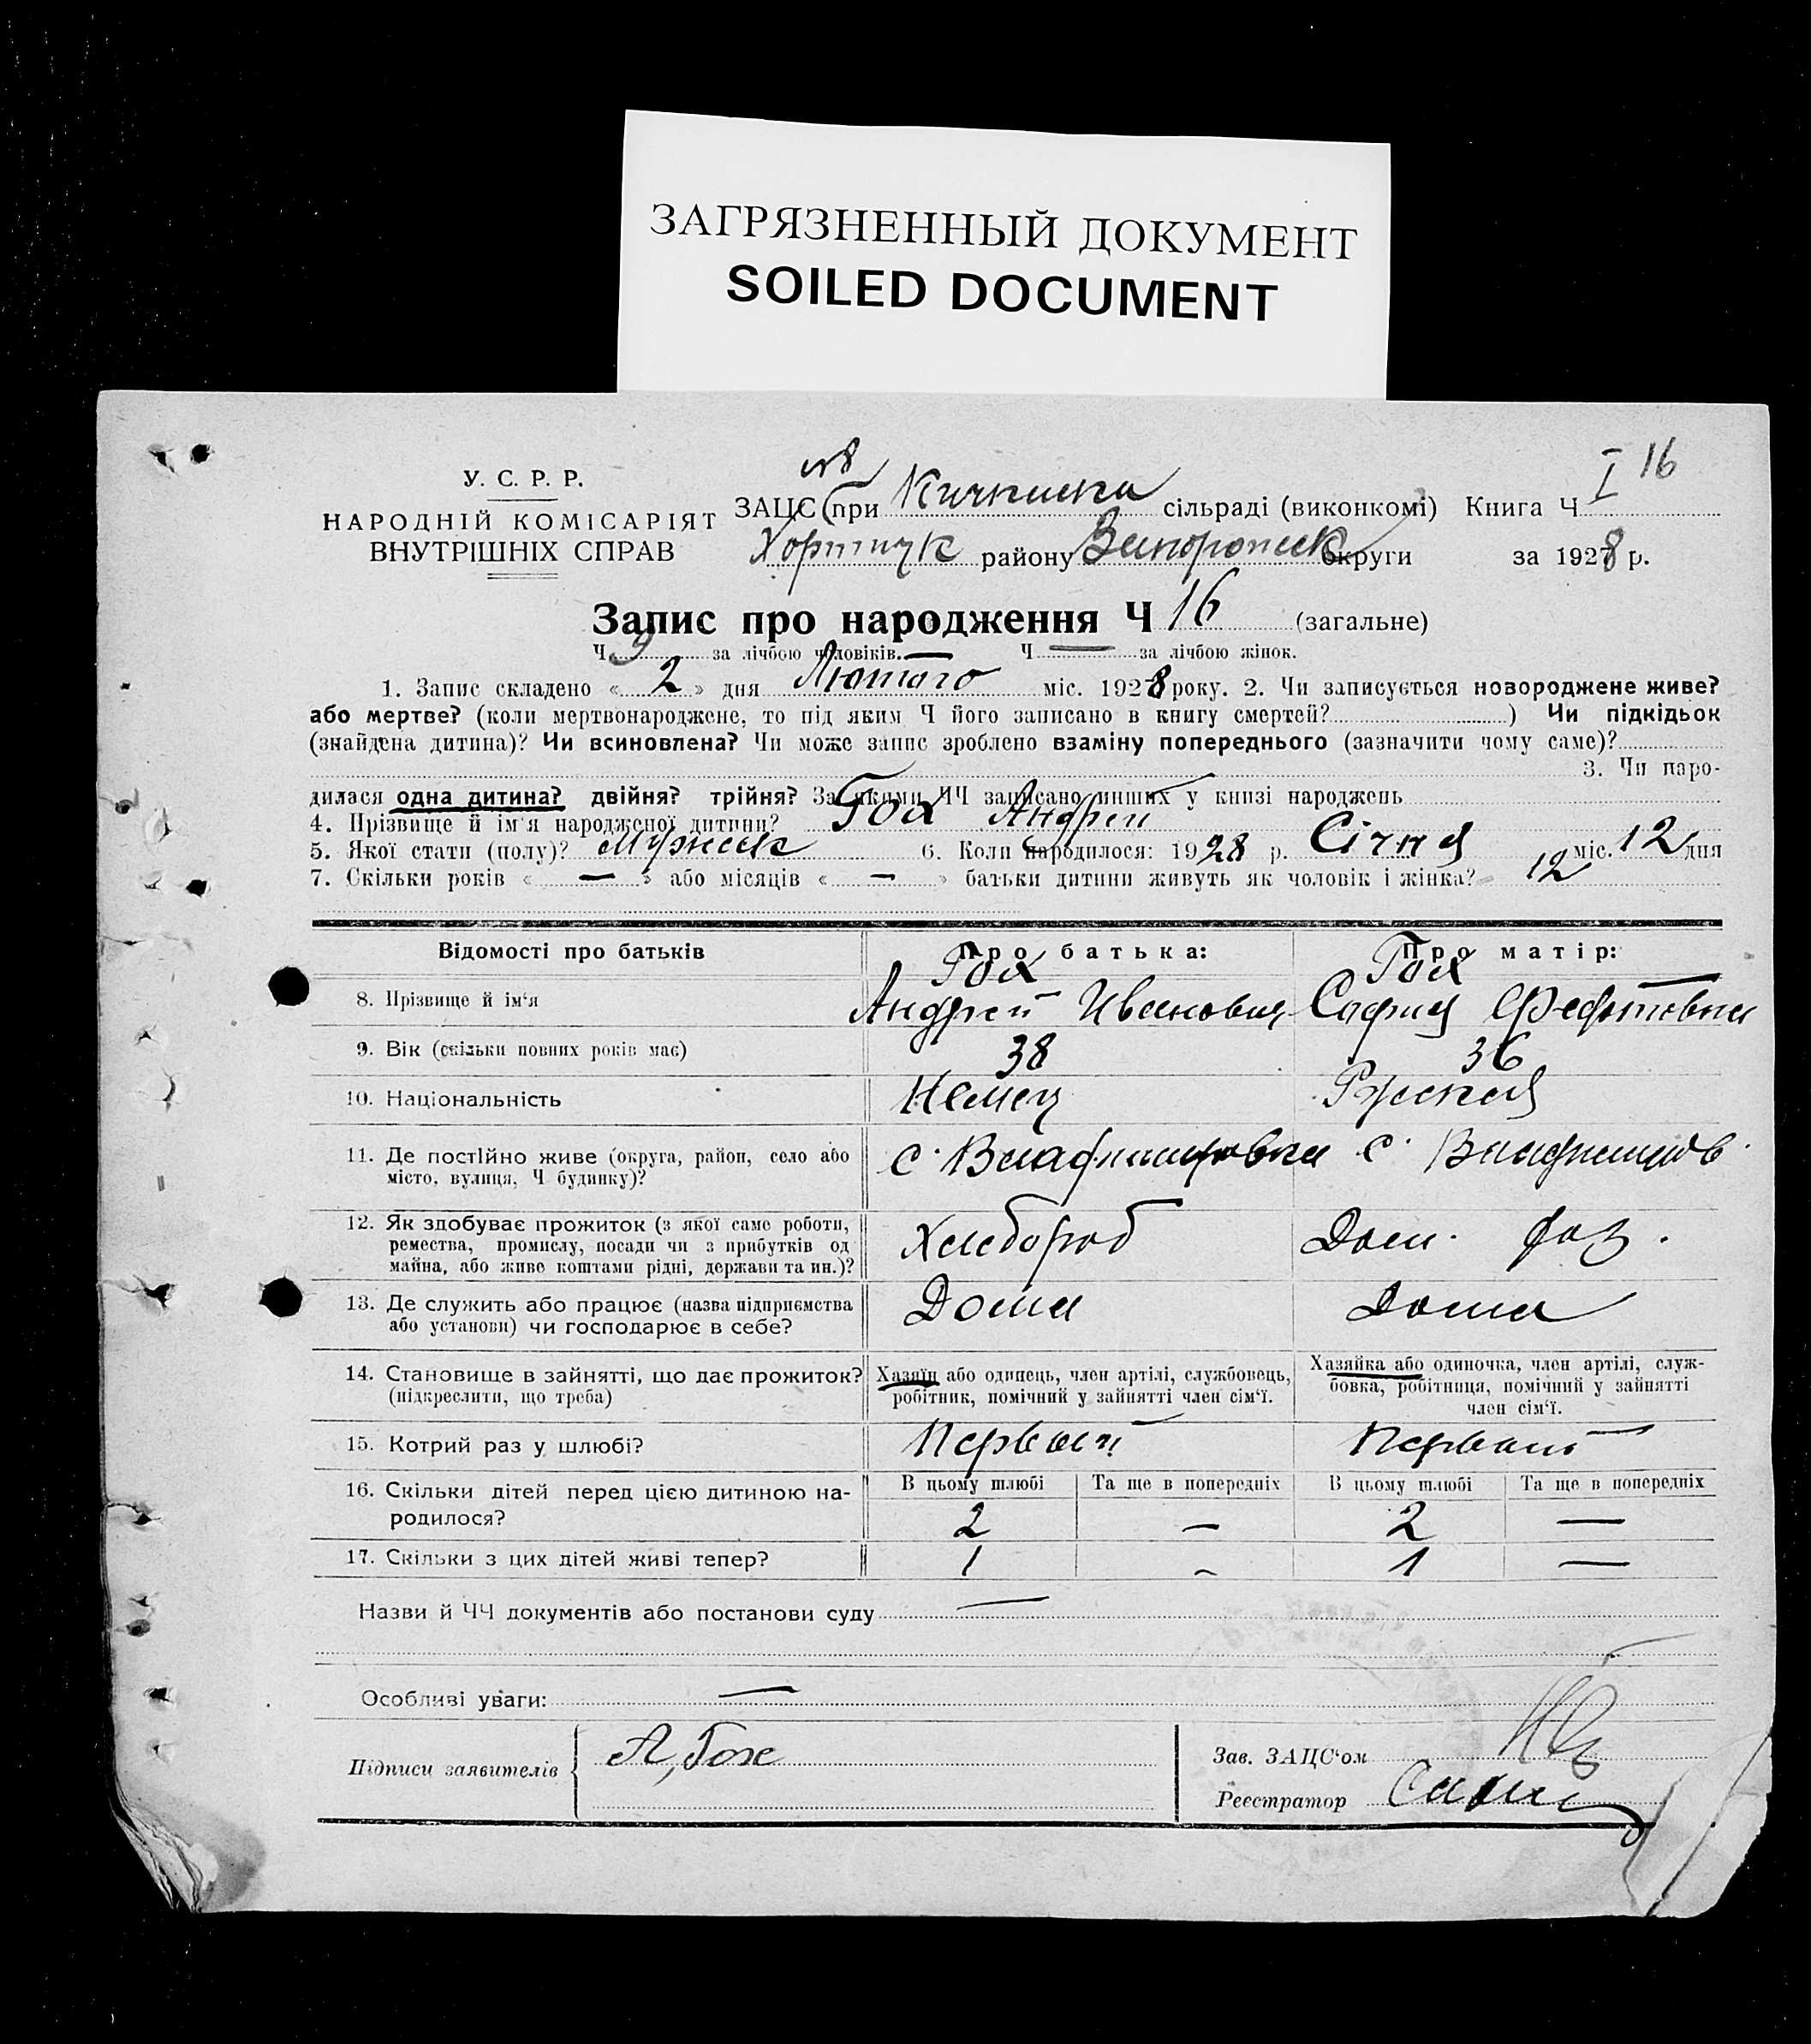 ЗАГРЯЗНЕННЫЙ ДОКУМЕНТ
SOILED DOCUMENT
I 16
У. С. Р. Р.
НАРОДНІЙ КОМІСАРІЯТ
ВНУТРІШНІХ СПРАВ
ЗАЦС (при Кичкиска сільраді (виконкомі) Книга Ч
Хортицк району Запорожск округи за 1928 р.
Запис про народження Ч 16 (загальне)
Ч 9 за лічбою чоловіків. Ч — за лічбою жінок.
1. Запис складено « 2 » дня Лютого міс. 1928 року. 2. Чи записується новороджене живе?
або мертве? (коли мертвонароджене, то під яким Ч його записано в книгу смертей? ) Чи підкідьок
(знайдена дитина)? Чи всиновлена? Чи може запис зроблено взаміну попереднього (зазначити чому саме)?
3. Чи наро-
дилася одна дитина? двійня? трійня? За якими ЧЧ записано инших у книзі народжень
4. Прізвище й ім'я народженої дитини? Гох Андрей
5. Якої стати (полу)? Мужеск 6. Коли народилося: 1928 р. Січня міс. 12 дня
7. Скільки років « — » або місяців « — » батьки дитини живуть як чоловік і жінка? 12
Відомості про батьків Про батька: Про матір:
Гох Гох
8. Прізвище й ім'я Андрей Иванович София Федотовна
9. Вік (скільки повних років має) 38 36
10. Національність Немец Руская
11. Де постійно живе (округа, район, село або с. Владимировка с. Владимиров
місто, вулиця, Ч будинку)?
12. Як здобуває прожиток (з якої саме роботи,
ремества, промислу, посади чи з прибутків од Хлебороб Дом. хоз.
майна, або живе коштами рідні, держави та ин.)?
13. Де служить або працює (назва підприємства Дома Дома
або установи) чи господарює в себе?
14. Становище в зайнятті, що дає прожиток? Хазяїн або одинець, член артілі, службовець, Хазяйка або одиночка, член артілі, служ-
(підкреслити, що треба) робітник, помічний у зайнятті член сім'ї. бовка, робітниця, помічний у зайнятті
член сім'ї.
15. Котрий раз у шлюбі? Первый Первый
16. Скільки дітей перед цією дитиною на- В цьому шлюбі Та ще в попередніх В цьому шлюбі Та ще в попередніх
родилося? 2 — 2 —
17. Скільки з цих дітей живі тепер? 1 - 1 —
Назви й ЧЧ документів або постанови суду —
Особливі уваги: —
Підписи заявителів А, Гох
Зав. ЗАЦС'ом
Реєстратор